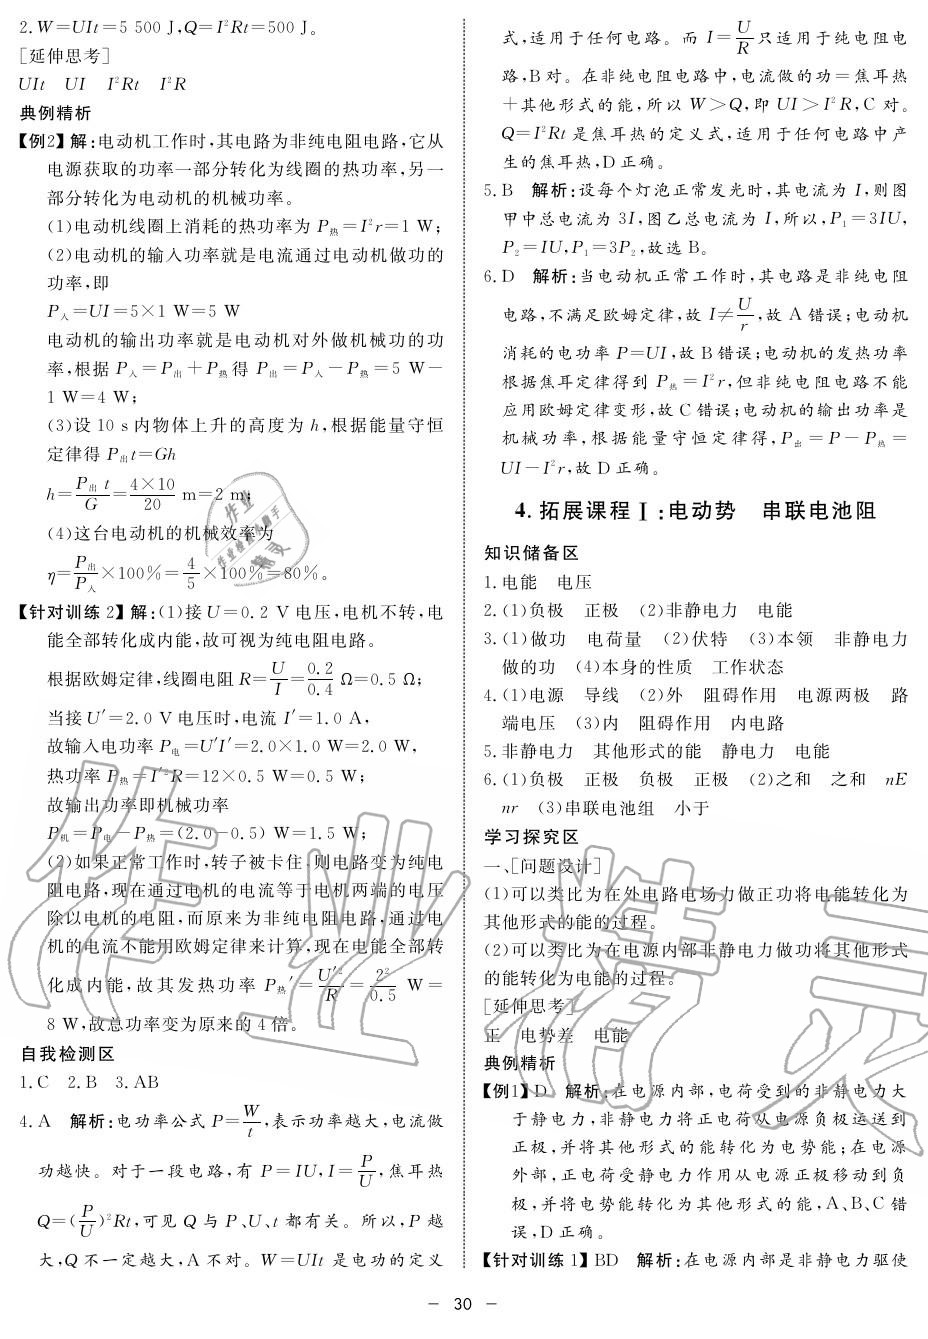 2. W=UIt=5 500 J,Q=I²Rt=500 J。
[延伸思考]
UIt　UI　I²Rt　I²R
典例精析
【例2】解:电动机工作时,其电路为非纯电阻电路,它从
电源获取的功率一部分转化为线圈的热功率,另一
部分转化为电动机的机械功率。
(1)电动机线圈上消耗的热功率为 P热=I²r=1 W;
(2)电动机的输入功率就是电流通过电动机做功的
功率,即
P入=UI=5×1 W=5 W
电动机的输出功率就是电动机对外做机械功的功
率,根据 P入=P出+P热得 P出=P入-P热=5 W-
1 W=4 W;
(3)设 10 s 内物体上升的高度为 h,根据能量守恒
定律得 P出t=Gh
h=P出 t/G=4×10/20 m=2 m;
(4)这台电动机的机械效率为
η=P出/P入×100%=4/5×100%=80%。
【针对训练 2】解:(1)接 U=0.2 V 电压,电机不转,电
能全部转化成内能,故可视为纯电阻电路。
根据欧姆定律,线圈电阻 R=U/I=0.2/0.4 Ω=0.5 Ω;
当接 U′=2.0 V 电压时,电流 I′=1.0 A,
故输入电功率 P电=U′I′=2.0×1.0 W=2.0 W,
热功率 P热=I′²R=12×0.5 W=0.5 W;
故输出功率即机械功率
P机=P电-P热=(2.0-0.5) W=1.5 W;
(2)如果正常工作时,转子被卡住,则电路变为纯电
阻电路,现在通过电机的电流等于电机两端的电压
除以电机的电阻,而原来为非纯电阻电路,通过电
机的电流不能用欧姆定律来计算,现在电能全部转
化成内能,故其发热功率 P热′=U′²/R=2²/0.5 W=
8 W,故总功率变为原来的 4 倍。
自我检测区
1. C　2. B　3. AB
4. A　解析:电功率公式 P=W/t,表示功率越大,电流做
功越快。对于一段电路,有 P=IU,I=P/U,焦耳热
Q=(P/U)²Rt,可见 Q 与 P、U、t 都有关。所以,P 越
大,Q 不一定越大,A 不对。W=UIt 是电功的定义
式,适用于任何电路。而 I=U/R只适用于纯电阻电
路,B 对。在非纯电阻电路中,电流做的功=焦耳热
+其他形式的能,所以 W>Q,即 UI>I²R,C 对。
Q=I²Rt 是焦耳热的定义式,适用于任何电路中产
生的焦耳热,D 正确。
5. B　解析:设每个灯泡正常发光时,其电流为 I,则图
甲中总电流为 3I,图乙总电流为 I,所以,P₁=3IU,
P₂=IU,P₁=3P₂,故选 B。
6. D　解析:当电动机正常工作时,其电路是非纯电阻
电路,不满足欧姆定律,故 I≠U/r,故 A 错误;电动机
消耗的电功率 P=UI,故 B 错误;电动机的发热功率
根据焦耳定律得到 P热=I²r,但非纯电阻电路不能
应用欧姆定律变形,故 C 错误;电动机的输出功率是
机械功率,根据能量守恒定律得,P出=P-P热=
UI-I²r,故 D 正确。
4. 拓展课程Ⅰ:电动势　串联电池阻
知识储备区
1. 电能　电压
2. (1)负极　正极　(2)非静电力　电能
3. (1)做功　电荷量　(2)伏特　(3)本领　非静电力
做的功　(4)本身的性质　工作状态
4. (1)电源　导线　(2)外　阻碍作用　电源两极　路
端电压　(3)内　阻碍作用　内电路
5. 非静电力　其他形式的能　静电力　电能
6. (1)负极　正极　负极　正极　(2)之和　之和　nE
nr　(3)串联电池组　小于
学习探究区
一、[问题设计]
(1)可以类比为在外电路电场力做正功将电能转化为
其他形式的能的过程。
(2)可以类比为在电源内部非静电力做功将其他形式
的能转化为电能的过程。
[延伸思考]
正　电势差　电能
典例精析
【例1】D　解析:在电源内部,电荷受到的非静电力大
于静电力,非静电力将正电荷从电源负极运送到
正极,并将其他形式的能转化为电势能;在电源
外部,正电荷受静电力作用从电源正极移动到负
极,并将电势能转化为其他形式的能,A、B、C 错
误,D 正确。
【针对训练 1】BD　解析:在电源内部是非静电力驱使
－ 30 －
作业精灵